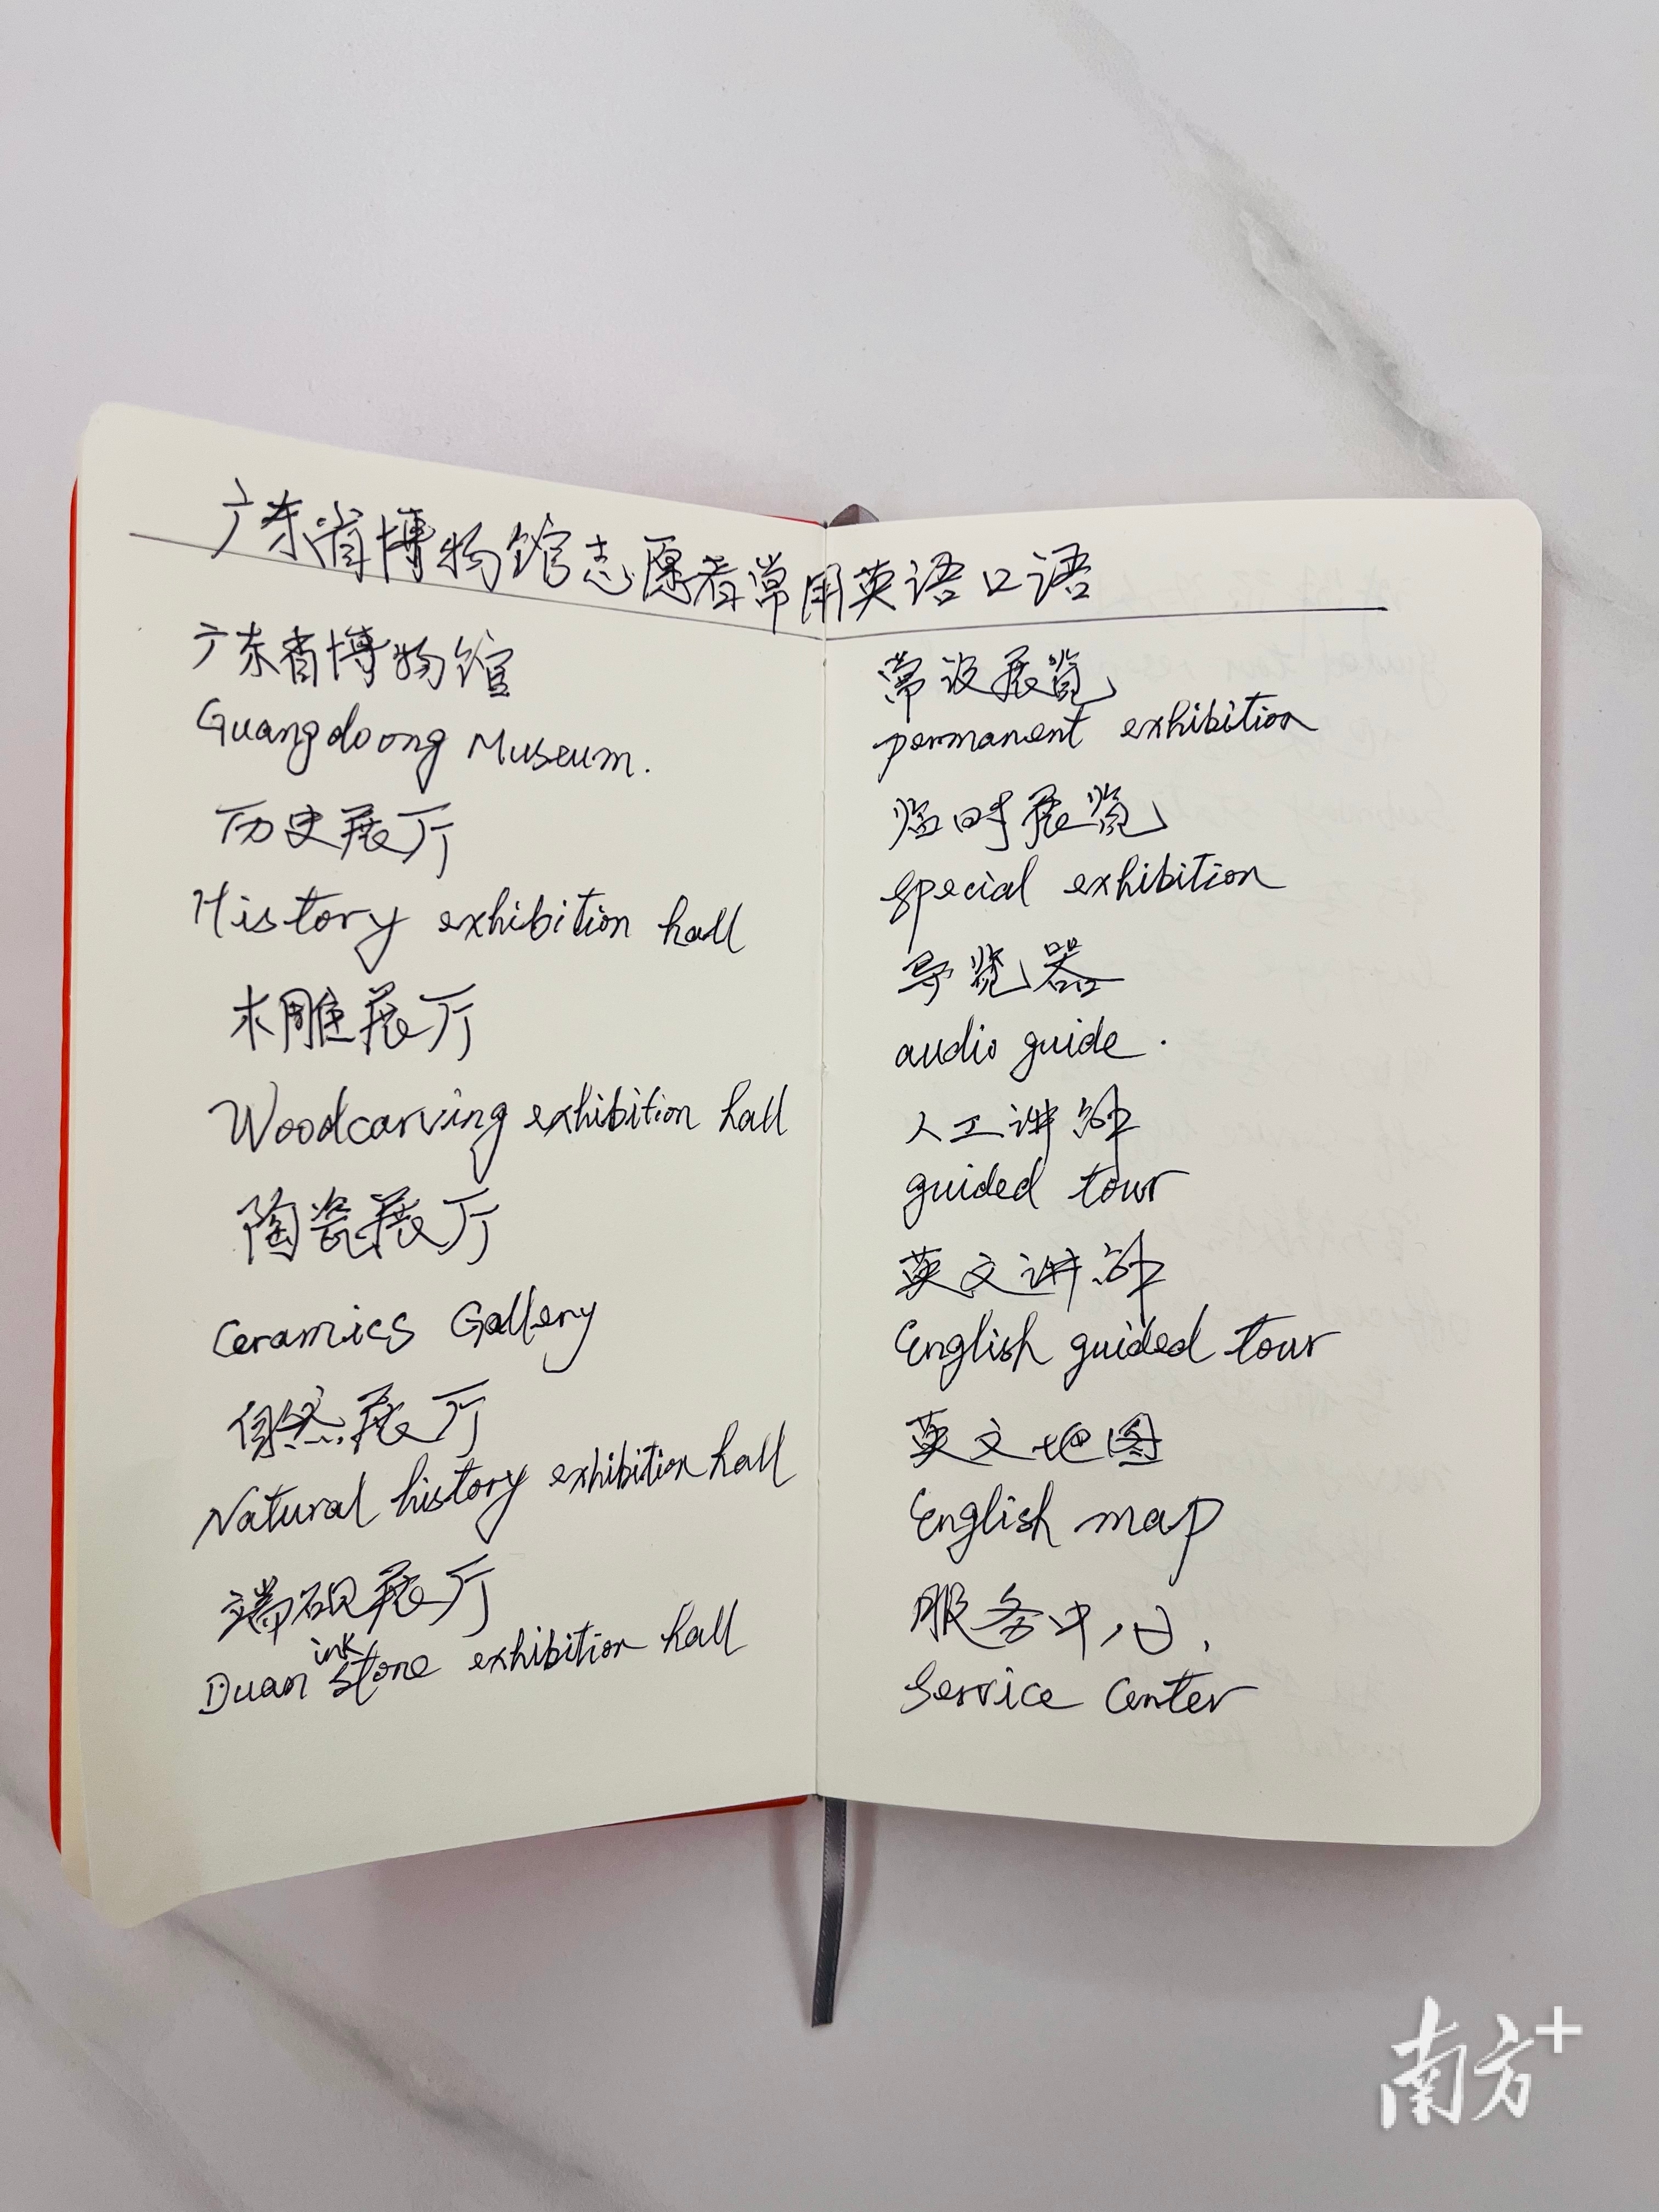 广东省博物馆志愿者常用英语口语
广东省博物馆
Guangdoong Museum.
历史展厅
History exhibition hall
木雕展厅
Woodcarving exhibition hall
陶瓷展厅
Ceramics Gallery
自然展厅
Natural history exhibition hall
端砚展厅
Duan ink stone exhibition hall
常设展览
permanent exhibition
临时展览
special exhibition
导览器
audio guide.
人工讲解
guided tour
英文讲解
English guided tour
英文地图
English map
服务中心.
Service Center
南方+